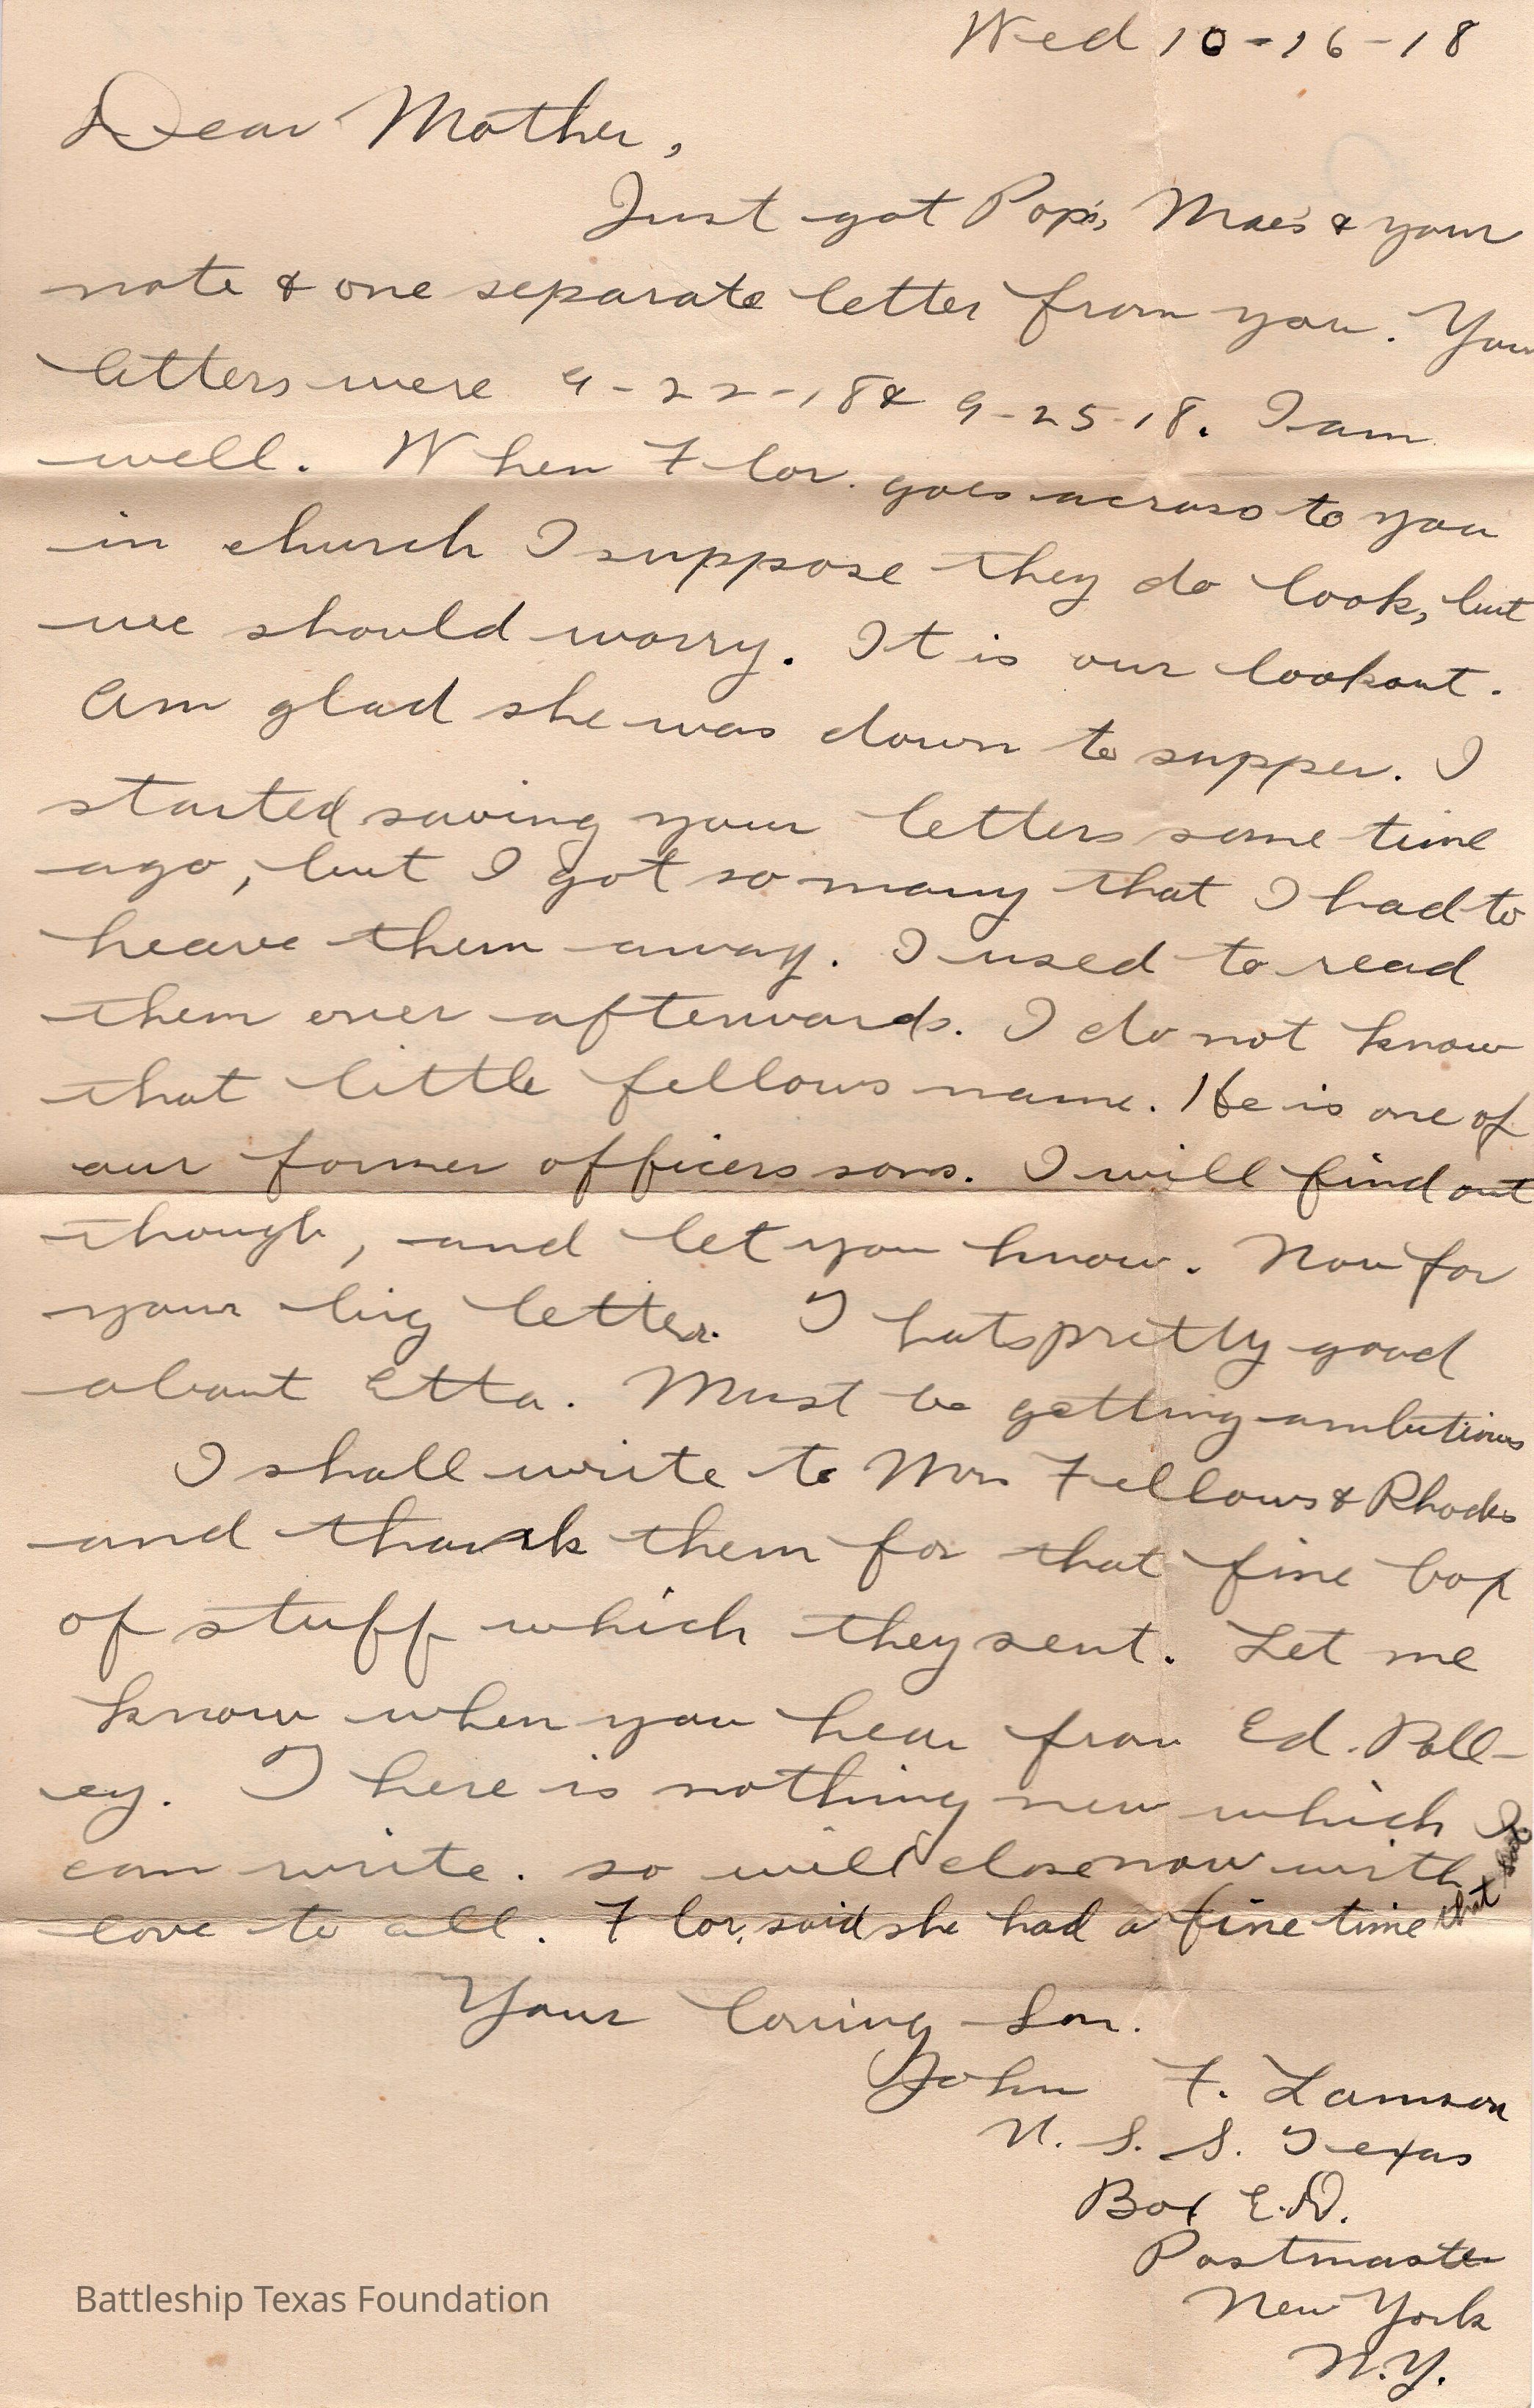 Wed 10-16-18
Dear Mother,
Just got Pop's, Mae's & your
note & one separate letter from you. Your
letters were 9-22-18 & 9-25-18. I am
well. When Flor. goes across to you
in church I suppose they do look, but
we should worry. It is our lookout.
Am glad she was down to supper. I
started saving your letters some time
ago, but I got so many that I had to
heave them away. I used to read
them over afterwards. I do not know
that little fellows name. He is one of
our former officers sons. I will find out
though, and let you know. Now for
your big letter. Thats pretty good
about Etta. Must be getting ambitious
I shall write to Mrs Fellows & Rhodes
and thank them for that fine box
of stuff which they sent. Let me
know when you hear from Ed. Poll-
ey. There is nothing new which I
can write. so will close now with
love to all. Flor. said she had a fine time that
Your loving Son.
John F. Lamson
U. S. S. Texas
Box E.D.
Postmaster
New York
N.Y.
Battleship Texas Foundation